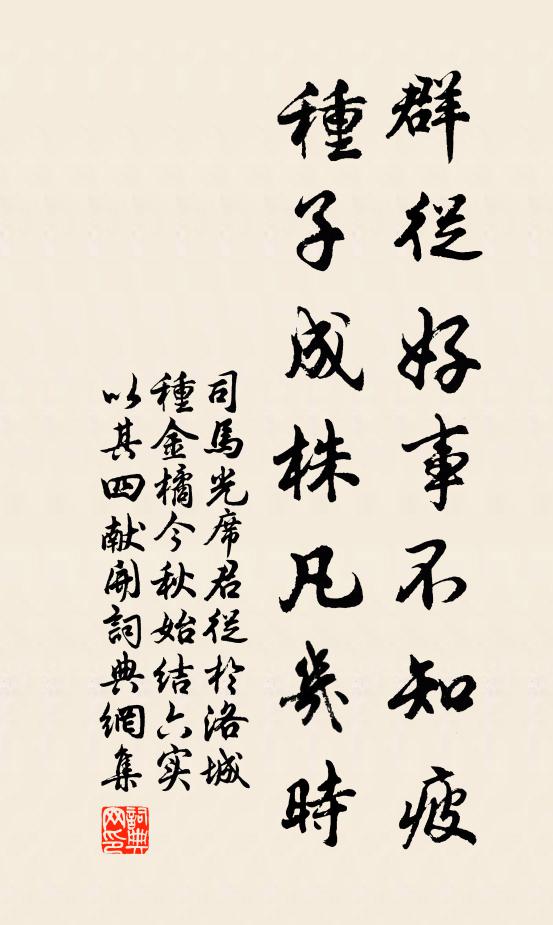 群從好事不知疲
種子成株凡幾時
司馬光席君從於洛城
種金橘今秋始結六实
以其四献開詞典網集
詞典
网印